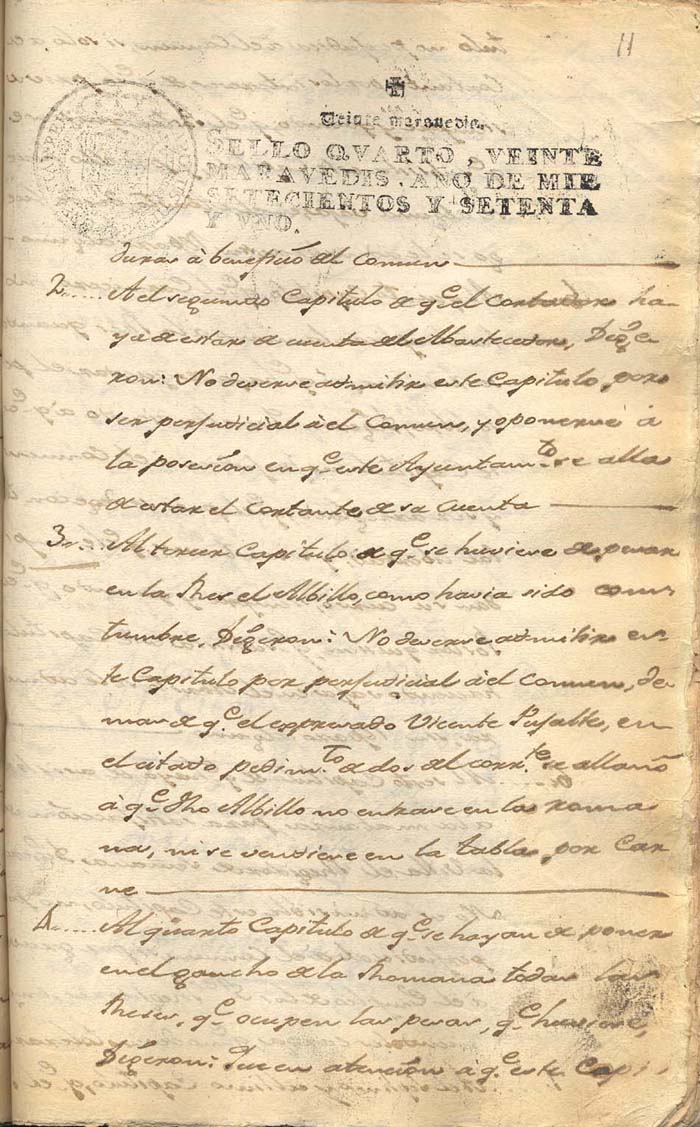 11
Veinte maravedis.
SELLO QVARTO, VEINTE
MARAVEDIS, AÑO DE MIL
SETECIENTOS Y SETENTA
Y VNO.
durar à beneficio del comun
2. A el segundo Capitulo de qe. el Cortador ha-
ya de estar de cuenta del Abastecedor, Dixe-
ron: No deverse admitir este Capitulo, por
ser perjudicial àel Comun, y oponerse à
la posesion en qe. este Ayuntamto. se alla
de estar el Cortante de sa Cuenta
3. Al tercer Capitulo de qe. se huviese de pesar
en la Res el Albillo, como havia sido cos-
tumbre, Dixeron: No deverse admitir es-
te Capitulo por perjudicial àel comun, de
mas de qe. el expresado Vicente Pujalte, en
el citado pedimto. de dos del corrte. se allanò
à qe. dho Albillo no entrase en la roma
na, ni se vendiese en la tabla, por Car
ne
4. Al quarto Capitulo de qe. se hayan de poner
en el gancho de la Romana todas las
Reses, qe. ocupen las pesas, qe. huviese,
Dixeron: Que en atencion à qe. este Capi-